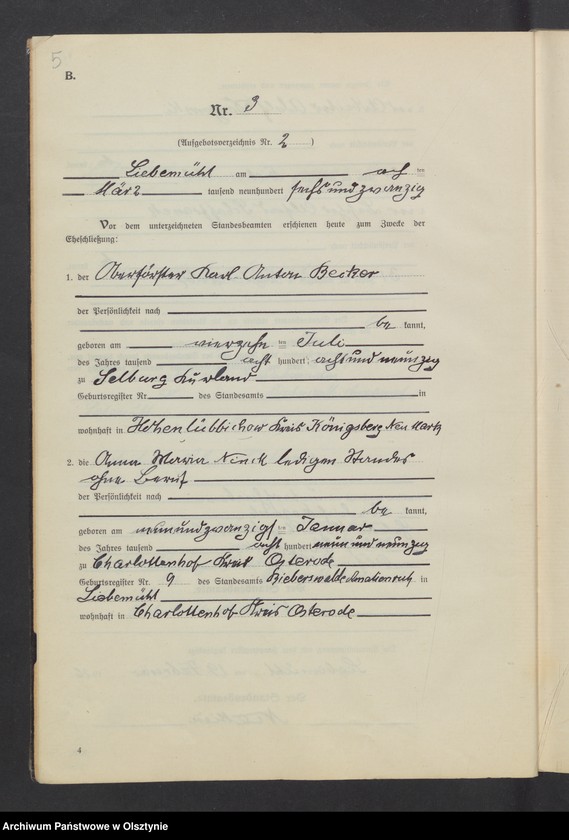 5
B.
Nr. 3
(Aufgebotsverzeichnis Nr. 2 )
Liebemühl am acht ten
März tausend neunhundert sechsundzwanzig
Vor dem unterzeichneten Standesbeamten erschienen heute zum Zwecke der
Eheschließung:
1. der Oberförster Karl Anton Becker
der Persönlichkeit nach
be kannt,
geboren am vierzehn ten Juli
des Jahres tausend acht hundert achtundneunzig
zu Selburg Kurland
Geburtsregister Nr. des Standesamts in
wohnhaft in Hohenlübbichow Kreis Königsberg Neumark
2. die Anna Maria ledigen Standes
ohne Beruf
der Persönlichkeit nach
be kannt,
geboren am neunundzwanzigs ten Januar
des Jahres tausend acht hundert neunundneunzig
zu Charlottenhof Kreis Osterode
Geburtsregister Nr. 9 des Standesamts Bieberswalde in
Liebemühl
wohnhaft in Charlottenhof Kreis Osterode
4
Archiwum Państwowe w Olsztynie